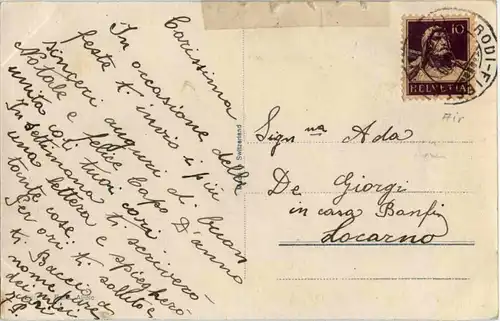 Carissima
In occasione delle
feste ti invio i più
sinceri auguri di buon
Natale e felice Capo D'anno
unita coi tuoi cari
In settimana ti scriverò
una lettera e spiegherò
tante cose.
Per ora ti saluto e
ti Bacio a
nome
dei miei
Switzerland
10
HELVETIA
RODI-FI
Sign na Ada
De Giorgi
in casa Banfi
Locarno